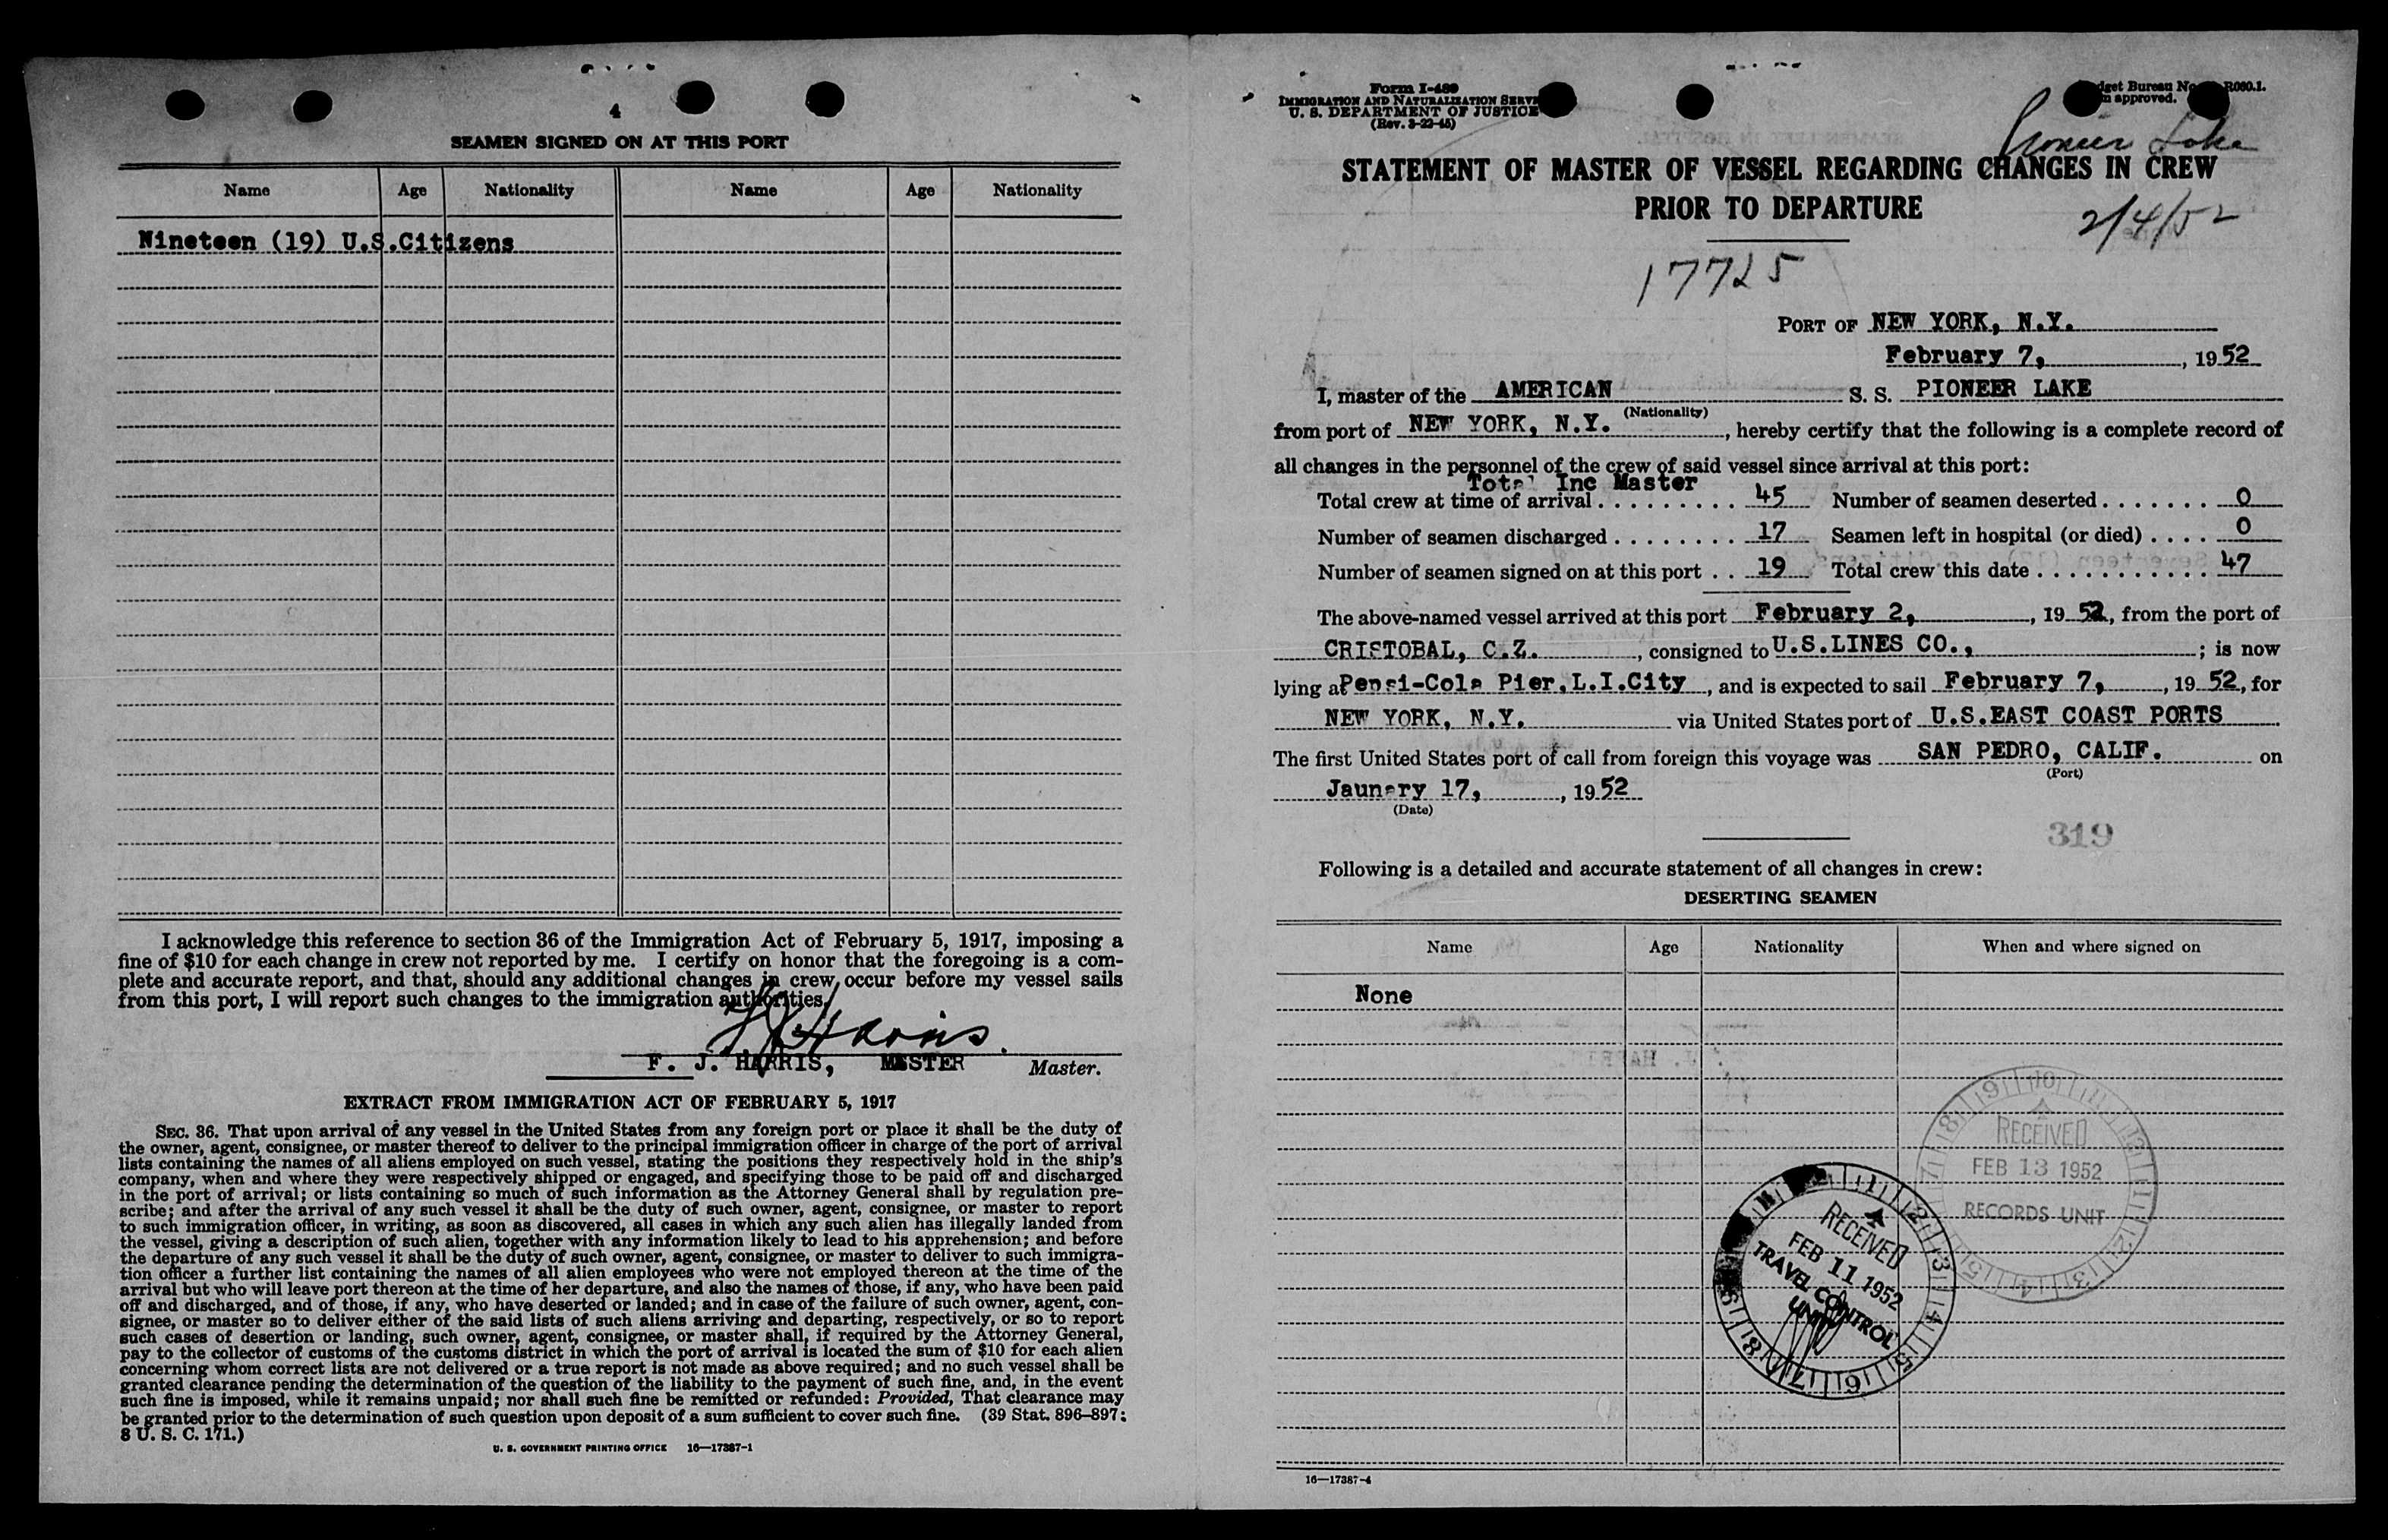 4
SEAMEN SIGNED ON AT THIS PORT
Name Age Nationality Name Age Nationality
Nineteen (19) U.S.Citizens
I acknowledge this reference to section 36 of the Immigration Act of February 5, 1917, imposing a
fine of $10 for each change in crew not reported by me. I certify on honor that the foregoing is a com-
plete and accurate report, and that, should any additional changes in crew occur before my vessel sails
from this port, I will report such changes to the immigration authorities.
F J Harris
F. J. HARRIS, MASTER Master.
EXTRACT FROM IMMIGRATION ACT OF FEBRUARY 5, 1917
SEC. 36. That upon arrival of any vessel in the United States from any foreign port or place it shall be the duty of
the owner, agent, consignee, or master thereof to deliver to the principal immigration officer in charge of the port of arrival
lists containing the names of all aliens employed on such vessel, stating the positions they respectively hold in the ship's
company, when and where they were respectively shipped or engaged, and specifying those to be paid off and discharged
in the port of arrival; or lists containing so much of such information as the Attorney General shall by regulation pre-
scribe; and after the arrival of any such vessel it shall be the duty of such owner, agent, consignee, or master to report
to such immigration officer, in writing, as soon as discovered, all cases in which any such alien has illegally landed from
the vessel, giving a description of such alien, together with any information likely to lead to his apprehension; and before
the departure of any such vessel it shall be the duty of such owner, agent, consignee, or master to deliver to such immigra-
tion officer a further list containing the names of all alien employees who were not employed thereon at the time of the
arrival but who will leave port thereon at the time of her departure, and also the names of those, if any, who have been paid
off and discharged, and of those, if any, who have deserted or landed; and in case of the failure of such owner, agent, con-
signee, or master so to deliver either of the said lists of such aliens arriving and departing, respectively, or so to report
such cases of desertion or landing, such owner, agent, consignee, or master shall, if required by the Attorney General,
pay to the collector of customs of the customs district in which the port of arrival is located the sum of $10 for each alien
concerning whom correct lists are not delivered or a true report is not made as above required; and no such vessel shall be
granted clearance pending the determination of the question of the liability to the payment of such fine, and, in the event
such fine is imposed, while it remains unpaid; nor shall such fine be remitted or refunded: Provided, That clearance may
be granted prior to the determination of such question upon deposit of a sum sufficient to cover such fine. (39 Stat. 896–897;
8 U. S. C. 171.)
U. S. GOVERNMENT PRINTING OFFICE 16—17387-1
Form I-489
IMMIGRATION AND NATURALIZATION SERV
U. S. DEPARTMENT OF JUSTICE
(Rev. 3-22-45)
dget Bureau No. R060.1.
approved.
Pioneer Lake
STATEMENT OF MASTER OF VESSEL REGARDING CHANGES IN CREW
PRIOR TO DEPARTURE
2/4/52
17725
PORT OF NEW YORK, N.Y.
February 7, , 19 52
I, master of the AMERICAN S. S. PIONEER LAKE
(Nationality)
from port of NEW YORK, N.Y. , hereby certify that the following is a complete record of
all changes in the personnel of the crew of said vessel since arrival at this port:
Total Inc Master
Total crew at time of arrival . . . . . . . . . 45 Number of seamen deserted . . . . . . . 0
Number of seamen discharged . . . . . . . . 17 Seamen left in hospital (or died) . . . . 0
Number of seamen signed on at this port . . 19 Total crew this date . . . . . . . . . . . 47
The above-named vessel arrived at this port February 2, , 19 52, from the port of
CRISTOBAL, C.Z. , consigned to U.S.LINES CO., ; is now
lying at Pepsi-Cola Pier,L.I.City , and is expected to sail February 7, , 19 52, for
NEW YORK, N.Y. via United States port of U.S.EAST COAST PORTS
The first United States port of call from foreign this voyage was SAN PEDRO, CALIF. on
(Port)
Jaunary 17, , 19 52
(Date)
319
Following is a detailed and accurate statement of all changes in crew:
DESERTING SEAMEN
Name Age Nationality When and where signed on
None
RECEIVED
FEB 13 1952
RECORDS UNIT
RECEIVED
FEB 11 1952
TRAVEL CONTROL
UNIT
16—17387-4